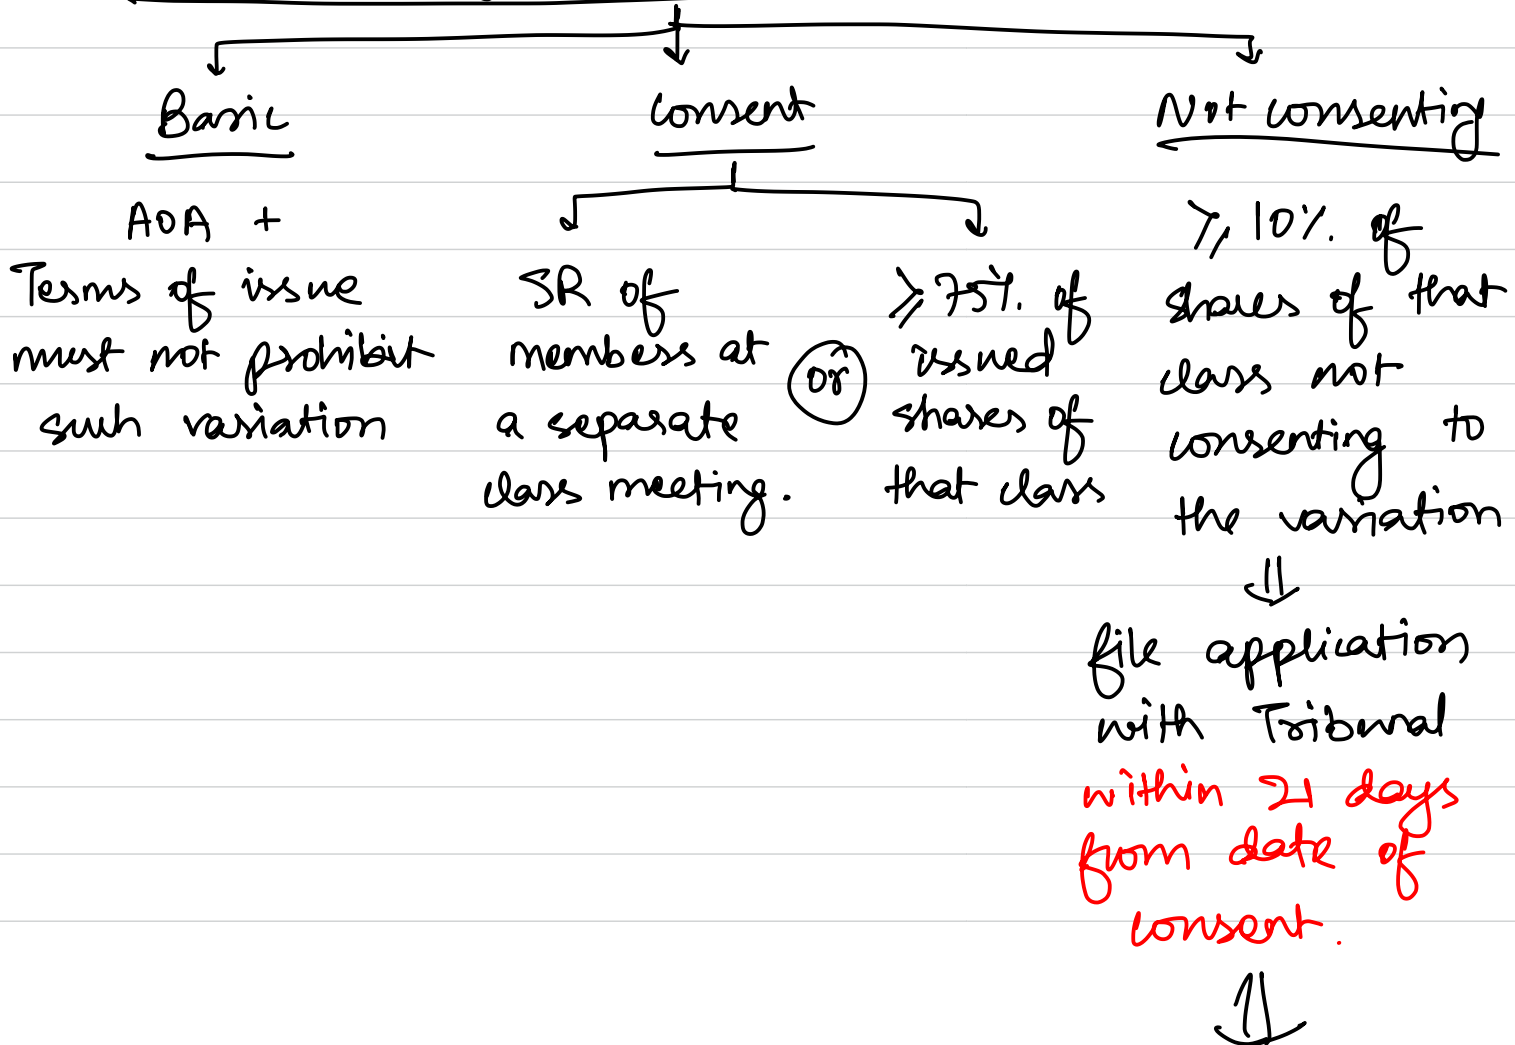 Basic
AOA +
Terms of issue
must not prohibit
such variation
Consent
SR of
members at
a separate
class meeting.
or
≥ 75% of
issued
shares of
that class
Not consenting
≥ 10% of
shares of that
class not
consenting to
the variation
⇓
file application
with Tribunal
within 21 days
from date of
consent.
⇓